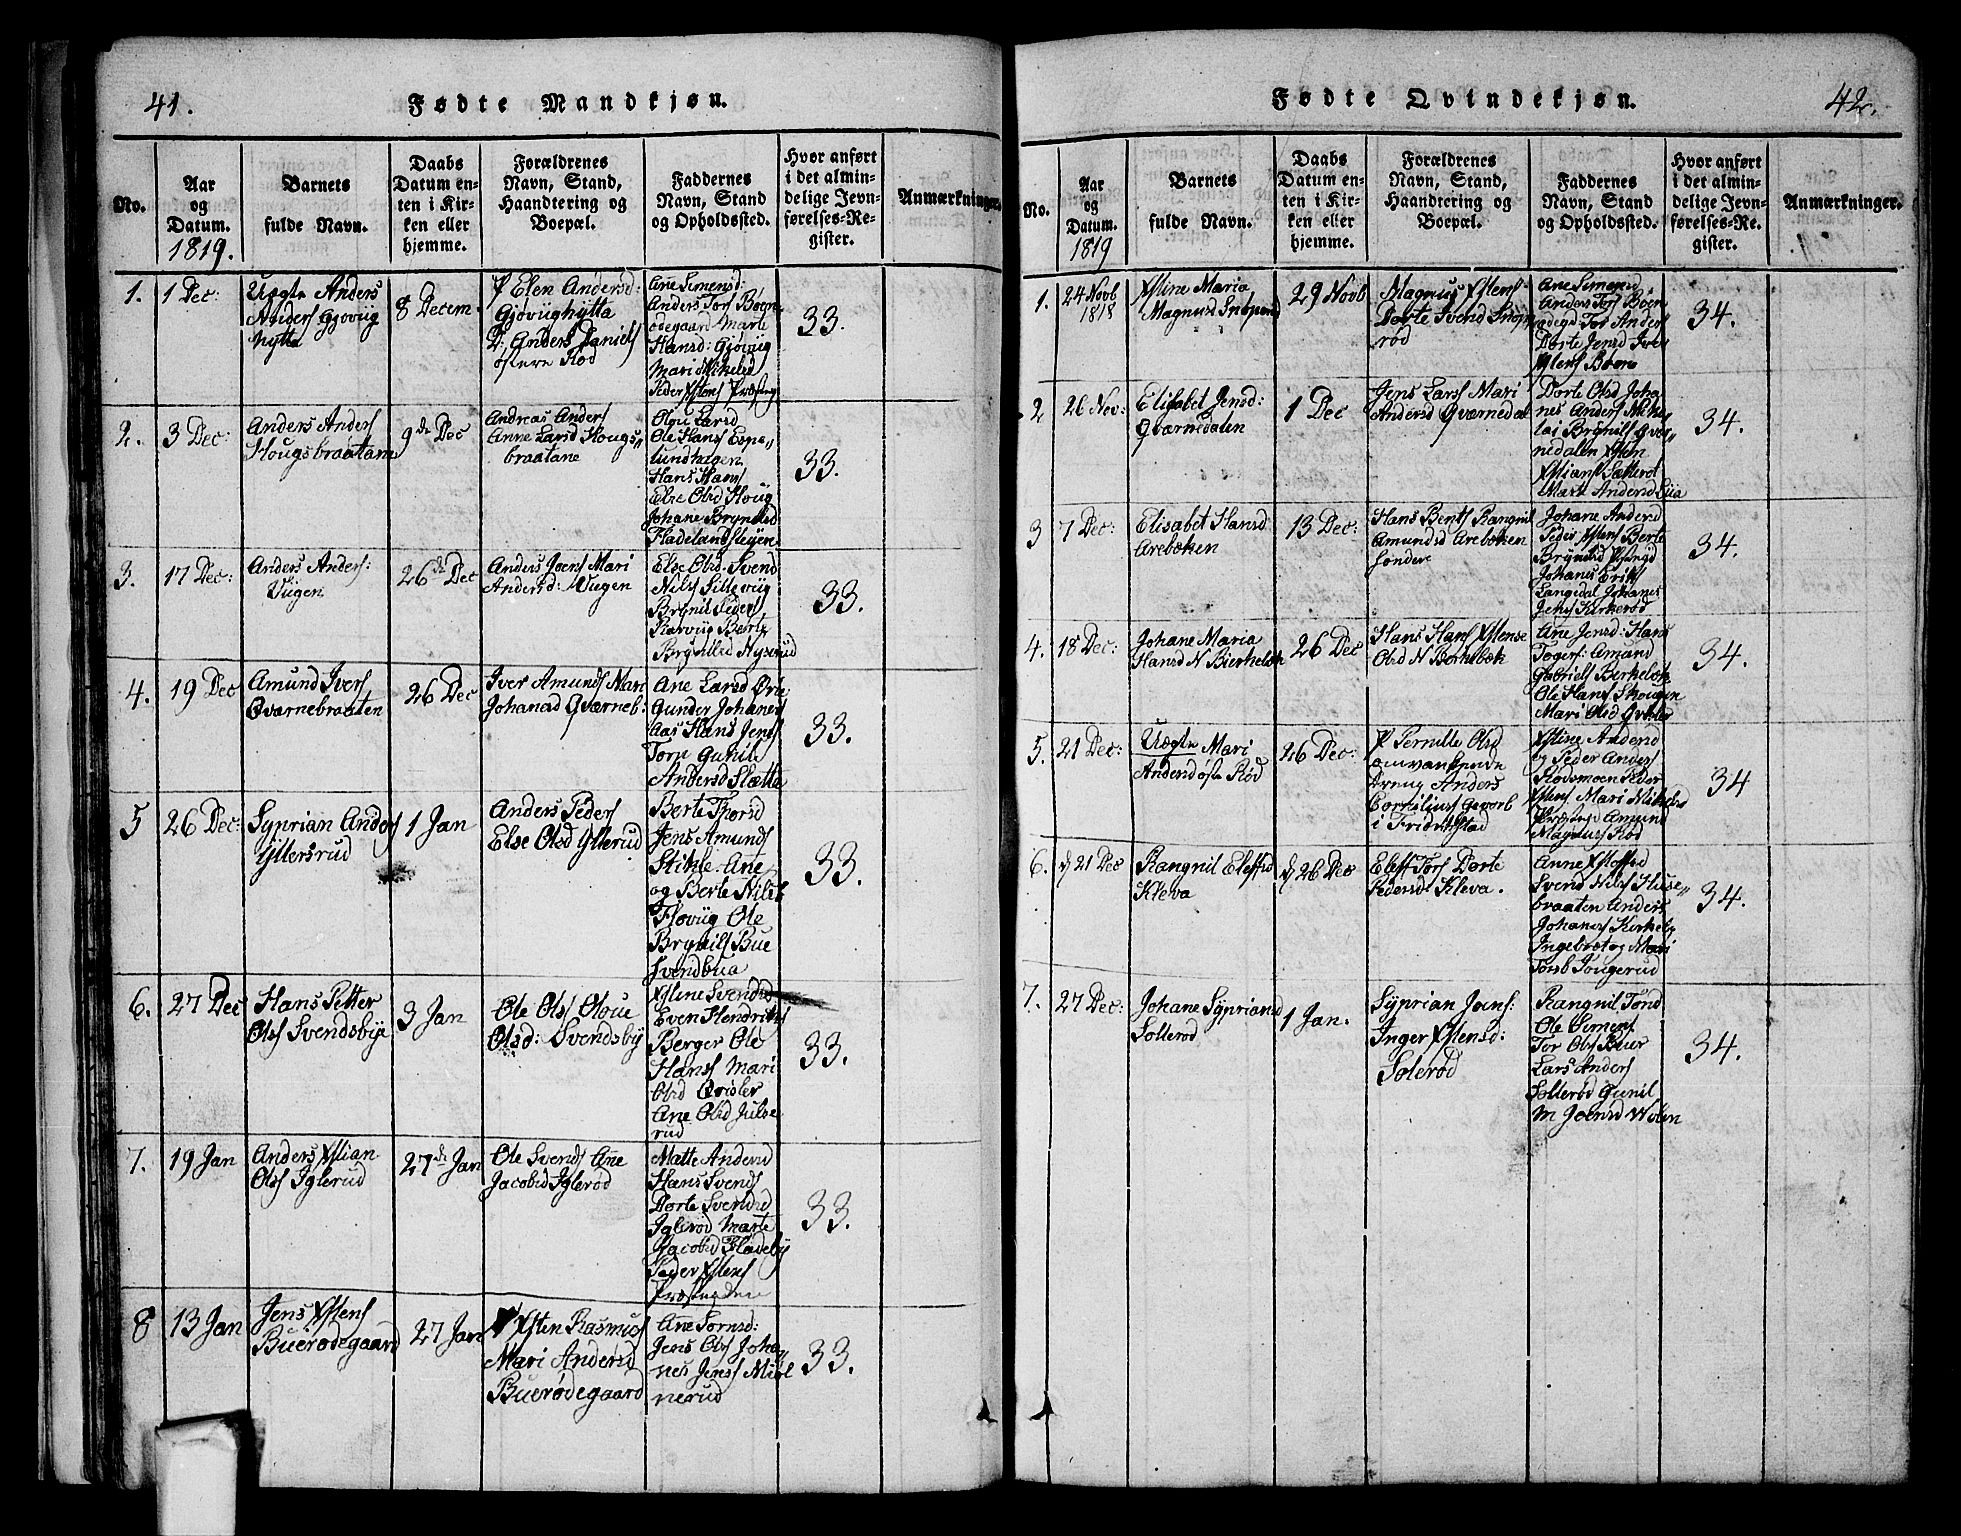 41.
Fødte Mandkjøn.
No.
Aar
og
Datum.
1819.
Barnets
fulde Navn.
Daabs
Datum en-
ten i Kir-
ken eller
hjemme.
Forældrenes
Navn, Stand,
Haandtering og
Boepæl.
Faddernes
Navn, Stand
og Opholdssted.
Hvor anført
i det almin-
delige Jevn-
førelses-Re-
gister.
Anmærkninger.
1.
1 Dec:
Uægte Anders
Anders Gjøvug
hytta
8 Decem
P Elen Andersd:
Gjøvughytta
D: Anders Daniels
østere Rød
Ane Simensd:
Anders Tors Bøen
Marte
Hansd: Gjøvug
Mari Mikelsd
Peder Xstens
33.
2.
3 Dec:
Anders Anders
Hougsbraatarne
9de Dec
Andreas Anders
Anne Larsd Hougs„
braatane
Olgu Larsd
Ole Hans Espe„
lundhagen
Hans Hans
Else Olsd Houg
Johane Brynilsd
Fladelandslegen
33.
3.
17 Dec:
Anders Anders:
Viigen
26de Dec
Anders Joens Mari
Andersd: Viigen
Else Olsd: Svend
Nils Sillevug
Brynil Peders
Rørvüg Berte
Brynilsd Nyserud
33.
4.
19 Dec
Amund Ivers
Qvarnebraaten
26 Dec
Iver Amunds Mari
Johansd Qværneb:
Ane Larsd Ørte
Gunder Johanes
Aas Hans Jens
Torp Gunil
Andersd Slætta
33.
5
26 Dec:
Syprian Anders
Yttersrud
1 Jan
Anders Peders
Else Olsd Ytterud
Berte Thorsd
Jens Amunds
Stikle Ane
og Berte Nilsd
Flovüg Ole
Brynils Bue
Svendbua
33.
6.
27 Dec
Hans Petter
Ols Svendsbye
3 Jan
Ole Ols Oloue
Olsd: Svendsby
Xstine Svendsd
Even Hendriks
Berger Ole
Hans Mari
Olsd Qvisler
Ane Olsd Julse
rud
33.
7.
19 Jan
Anders Xstian
Ols Iglerud
27de Jan
Ole Svends Ane
Jacobsd Iglerød
Matte Andersd
Hans Svends
Dorte Svendsd
Iglerød Marte
Jacobsd Fladeby
Peder Xstens
33.
8
13 Jan
Jens Xstens
Buerødegaard
27 Jan
Xsten Rasmus
Mari Andersd
Buerødegaard
Ane Tornsd:
Jens Ols Joha
nes Jens Miøl
nerud
33.
Fødte Qvindekjøn.
42.
No.
Aar
og
Datum.
1819
Barnets
fulde Navn.
Daabs
Datum en-
ten i Kir-
ken eller
hjemme.
Forældrenes
Navn, Stand,
Haandtering og
Boepæl.
Faddernes
Navn, Stand
og Opholdssted.
Hvor anført
i det almin-
delige Jevn-
førelses-Re-
gister.
Anmærkninger.
1.
24 Novb
1818
Xstine Maria
Magnusd
29 Novb
Magnus Xstens
Dorte Svend
rød
Ane Simensd
Anders Tors Bøen
Tor Anders
Dorte Jensd Iver
Xstens Bøen
34.
2
26 Nov:
Elisabet Jensd:
Qværnedalen
1 Dec
Jens Lars Mari
Andersd Qværnedal
Dorte Olsd Joha
nes Anders Nicho
lai Brynils Qvær„
nedalen Xsten
Xstians Sætterøt
Marte Andersd Liia
34.
3
7 Dec:
Elisabet Hansd
Arebøken
13 Dec:
Hans Bents Rangnil
Amundsd Arebøken
søndere
Johane Andersd
Peder Xstens Berte
Brynilsd
Johanes Eriks
Langedal Johanes
Jens Kirkerød
34.
4.
18 Dec:
Johane Maria
Hansd N Bierkebøk
26 Dec
Hans Hans Xstense
Olsd N Børkebøk
Ane Jensd: Hans
Togers: Amund
Gabriels Berkebøk
Ole Hans Skougen
Mari Olsd Qvisler
34.
5.
21 Dec:
Uægte Mari
Andersd øste Rød
26 Dec:
P Pernille Olsd
omvankende
Dreng Anders
Cornilius Gevorb
i Fridrikstad
Xstine Andersd
og Peder Anders
Rodsmoen Peder
Xstens Mari Mikelsd
Amund
Magnus Rød
34
6.
d 21 Dec
Rangnil Eleffsd
Kleva
d 26 Dec
Eleff Tors Dorte
Pedersd: Kleva.
Anne Xstoffsd
Svend Nils Huse„
braaten Anders
Johanes Kirkeby
Ingebret og Mari
Torsb Jougerud
34.
7.
27 Dec:
Johane Sypriansd
Sollerød
1 Jan.
Syprian Joens:
Inger Xstensd:
Solerød
Rangnil Tønd
Ole Simens
Tor Ols Buer
Lars Anders
Sollerød Gunil
M Joensd Wolen
34.